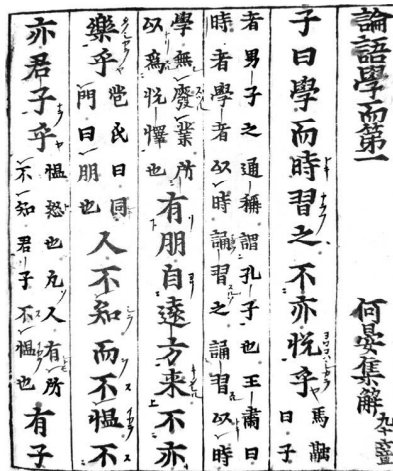 論語學而第一 何晏集解
子曰學而時習之不亦悦乎馬融曰子
者男子之通稱謂孔子也王肅曰
時者學者以時誦習之誦習以時
學無廢業所以爲悦懌也有朋自遠方来不亦
樂乎苞氏曰同門曰朋也人不知而不愠不
亦君子乎愠怒也凡人有所不知君子不愠也有子